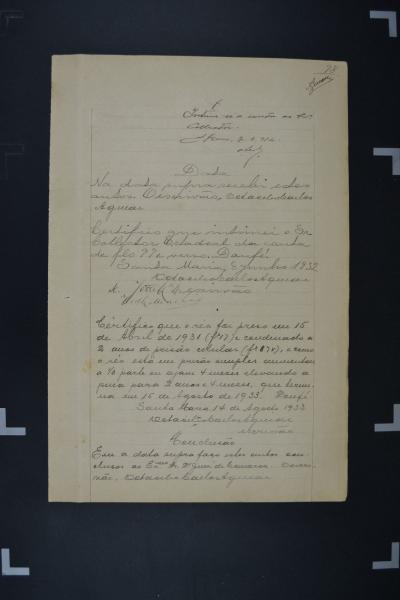 78
Intime-se a conta ao Sr.
Collector.
Data
Na data supra recebi estes
autos. O escrivão, Octacilio Carlos
Aguiar
Certifico que intimei o Sr
Collector Estadual da conta
de fls 77 e verso. Dou fé
Santa Maria, 9 Junho 1932
Octacilio Carlos Aguiar
Escrivão
Certifico que o réo foi preso em 15
de Abril de 1931 (fs 17) e condenado a
2 anos de prisão celular (fs 57v), e como
o réo está em prisão simples aumentou
a 6ª parte ou sejam 4 meses elevando a
pena para 2 anos e 4 meses, que termi-
na em 15 de Agosto de 1933. Dou fé
Santa Maria 14 de Agosto 1933
Octacilio Carlos Aguiar
escrivão
Conclusão
Em a data supra faço estes autos con-
clusos ao Exmo Dr. Juiz de Comarca. O escri-
vão, Octacilio Carlos Aguiar